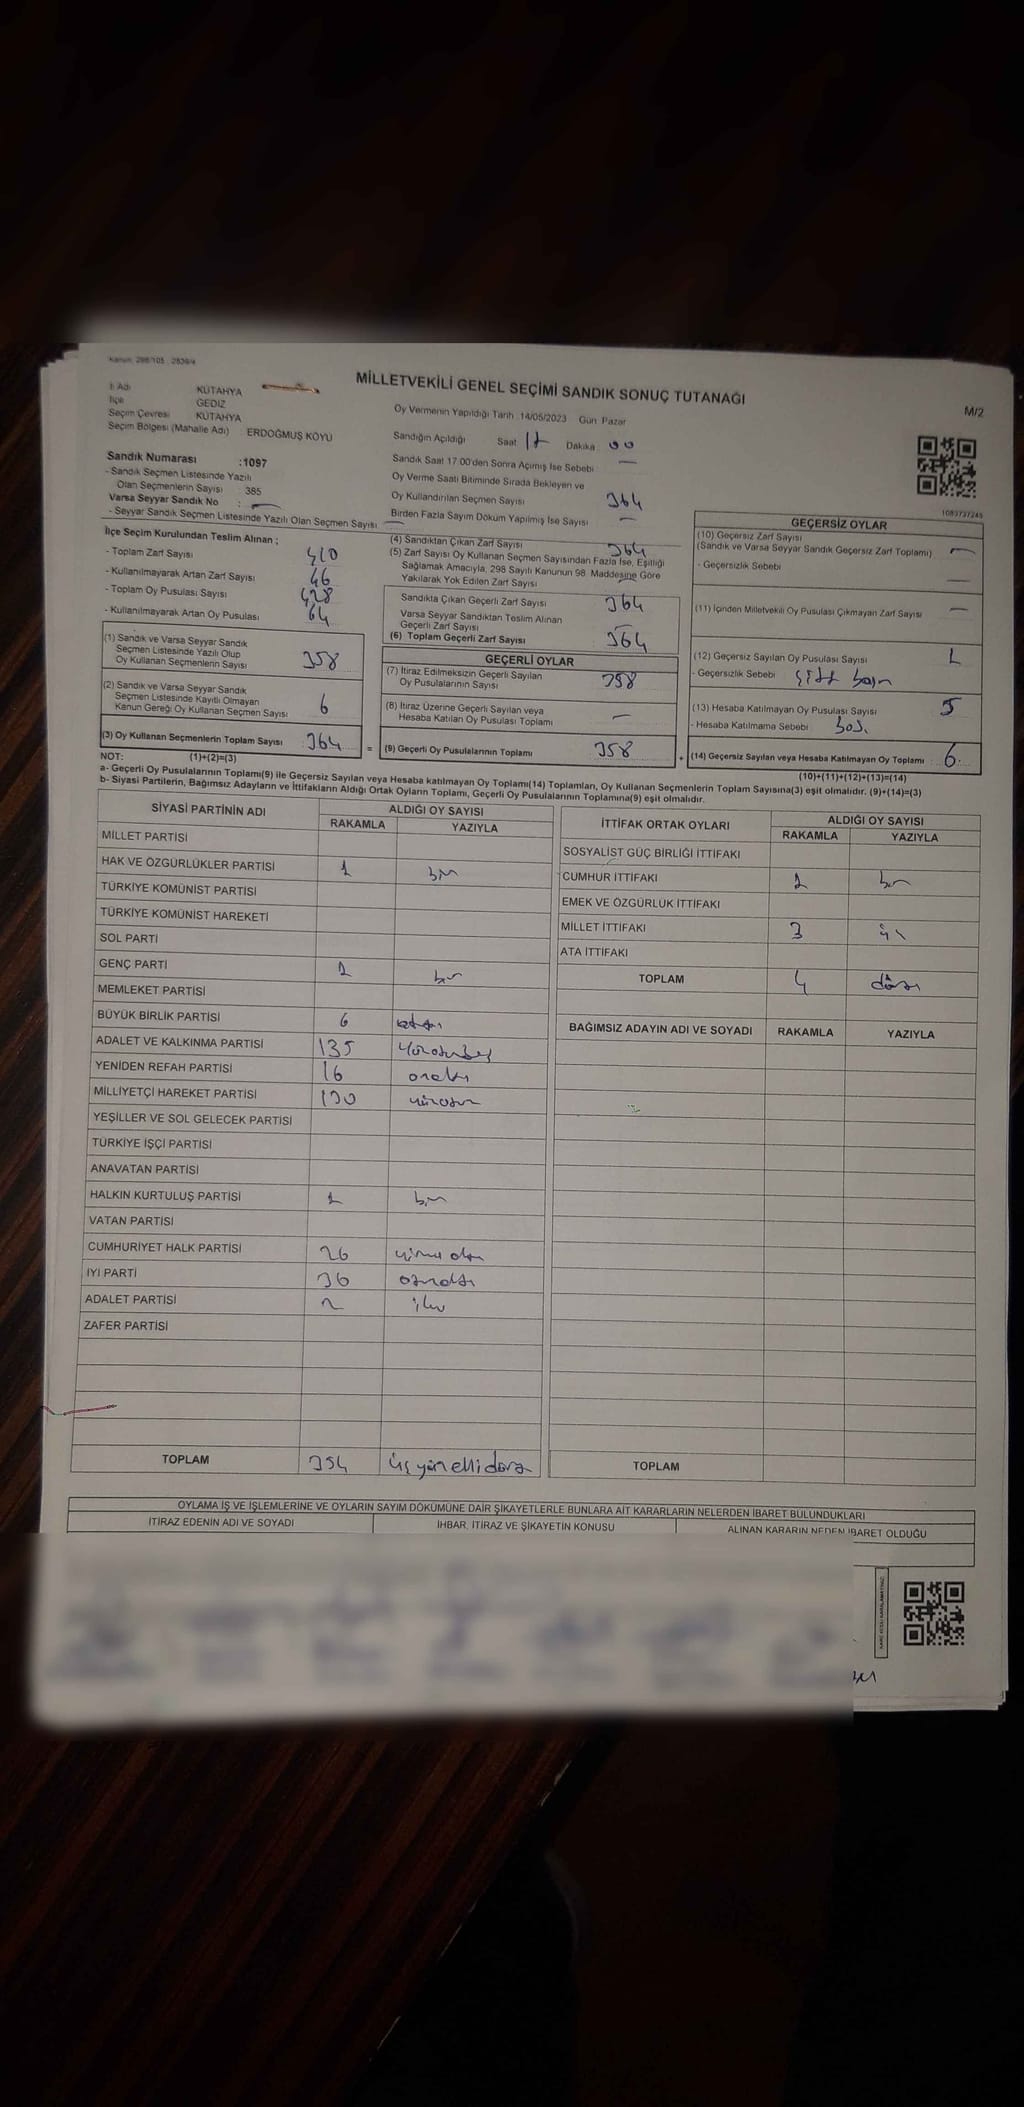 Kanun: 298/105 , 2839/4
MİLLETVEKİLİ GENEL SEÇİMİ SANDIK SONUÇ TUTANAĞI
M/2
İl Adı KÜTAHYA
İlçe GEDİZ
Seçim Çevresi KÜTAHYA
Seçim Bölgesi (Mahalle Adı) : ERDOĞMUŞ KÖYÜ
Sandık Numarası :1097
- Sandık Seçmen Listesinde Yazılı
Olan Seçmenlerin Sayısı : 385
Varsa Seyyar Sandık No : —
- Seyyar Sandık Seçmen Listesinde Yazılı Olan Seçmen Sayısı —
Oy Vermenin Yapıldığı Tarih 14/05/2023 Gün Pazar
Sandığın Açıldığı Saat 17 Dakika 00
Sandık Saat 17:00'den Sonra Açımış İse Sebebi —
Oy Verme Saati Bitiminde Sırada Bekleyen ve
Oy Kullandırılan Seçmen Sayısı 364
Birden Fazla Sayım Döküm Yapılmış İse Sayısı —
1083737245
İlçe Seçim Kurulundan Teslim Alınan ;
- Toplam Zarf Sayısı 410
- Kullanılmayarak Artan Zarf Sayısı 46
- Toplam Oy Pusulası Sayısı 428
- Kullanılmayarak Artan Oy Pusulası 64
(1) Sandık ve Varsa Seyyar Sandık
Seçmen Listesinde Yazılı Olup
Oy Kullanan Seçmenlerin Sayısı 358
(2) Sandık ve Varsa Seyyar Sandık
Seçmen Listesinde Kayıtlı Olmayan
Kanun Gereği Oy Kullanan Seçmen Sayısı 6
(3) Oy Kullanan Seçmenlerin Toplam Sayısı 364
(1)+(2)=(3)
(4) Sandıktan Çıkan Zarf Sayısı 364
(5) Zarf Sayısı Oy Kullanan Seçmen Sayısından Fazla İse, Eşitliği
Sağlamak Amacıyla, 298 Sayılı Kanunun 98. Maddesine Göre
Yakılarak Yok Edilen Zarf Sayısı —
Sandıkta Çıkan Geçerli Zarf Sayısı 364
Varsa Seyyar Sandıktan Teslim Alınan
Geçerli Zarf Sayısı —
(6) Toplam Geçerli Zarf Sayısı 364
GEÇERLİ OYLAR
(7) İtiraz Edilmeksizin Geçerli Sayılan
Oy Pusulalarının Sayısı 358
(8) İtiraz Üzerine Geçerli Sayılan veya
Hesaba Katılan Oy Pusulası Toplamı —
= (9) Geçerli Oy Pusulalarının Toplamı 358
GEÇERSİZ OYLAR
(10) Geçersiz Zarf Sayısı
(Sandık ve Varsa Seyyar Sandık Geçersiz Zarf Toplamı) —
- Geçersizlik Sebebi —
(11) İçinden Milletvekili Oy Pusulası Çıkmayan Zarf Sayısı —
(12) Geçersiz Sayılan Oy Pusulası Sayısı 1
- Geçersizlik Sebebi çift basın
(13) Hesaba Katılmayan Oy Pusulası Sayısı 5
- Hesaba Katılmama Sebebi boş.
+ (14) Geçersiz Sayılan veya Hesaba Katılmayan Oy Toplamı : 6.
(10)+(11)+(12)+(13)=(14)
NOT:
a- Geçerli Oy Pusulalarının Toplamı(9) ile Geçersiz Sayılan veya Hesaba katılmayan Oy Toplamı(14) Toplamları, Oy Kullanan Seçmenlerin Toplam Sayısına(3) eşit olmalıdır. (9)+(14)=(3)
b- Siyasi Partilerin, Bağımsız Adayların ve İttifakların Aldığı Ortak Oyların Toplamı, Geçerli Oy Pusulalarının Toplamına(9) eşit olmalıdır.
SİYASİ PARTİNİN ADI ALDIĞI OY SAYISI
RAKAMLA YAZIYLA
MİLLET PARTİSİ
HAK VE ÖZGÜRLÜKLER PARTİSİ 1 bir
TÜRKİYE KOMÜNİST PARTİSİ
TÜRKİYE KOMÜNİST HAREKETİ
SOL PARTİ
GENÇ PARTİ 1 bir
MEMLEKET PARTİSİ
BÜYÜK BİRLİK PARTİSİ 6
ADALET VE KALKINMA PARTİSİ 135 yüzotuzbeş
YENİDEN REFAH PARTİSİ 16 onaltı
MİLLİYETÇİ HAREKET PARTİSİ 130 yüzotuz
YEŞİLLER VE SOL GELECEK PARTİSİ
TÜRKİYE İŞÇİ PARTİSİ
ANAVATAN PARTİSİ
HALKIN KURTULUŞ PARTİSİ 1 bir
VATAN PARTİSİ
CUMHURİYET HALK PARTİSİ 26 yirmi altı
İYİ PARTİ 36 otuzaltı
ADALET PARTİSİ 2 iki
ZAFER PARTİSİ
TOPLAM 354 üç yüz ellidört
İTTİFAK ORTAK OYLARI ALDIĞI OY SAYISI
RAKAMLA YAZIYLA
SOSYALİST GÜÇ BİRLİĞİ İTTİFAKI
CUMHUR İTTİFAKI 1 bir
EMEK VE ÖZGÜRLÜK İTTİFAKI
MİLLET İTTİFAKI 3 üç
ATA İTTİFAKI
TOPLAM 4 dört
BAĞIMSIZ ADAYIN ADI VE SOYADI RAKAMLA YAZIYLA
TOPLAM
OYLAMA İŞ VE İŞLEMLERİNE VE OYLARIN SAYIM DÖKÜMÜNE DAİR ŞİKAYETLERLE BUNLARA AİT KARARLARIN NELERDEN İBARET BULUNDUKLARI
İTİRAZ EDENİN ADI VE SOYADI İHBAR, İTİRAZ VE ŞİKAYETİN KONUSU ALINAN KARARIN NEDEN İBARET OLDUĞU
KARE KODU KARALAMAYINIZ